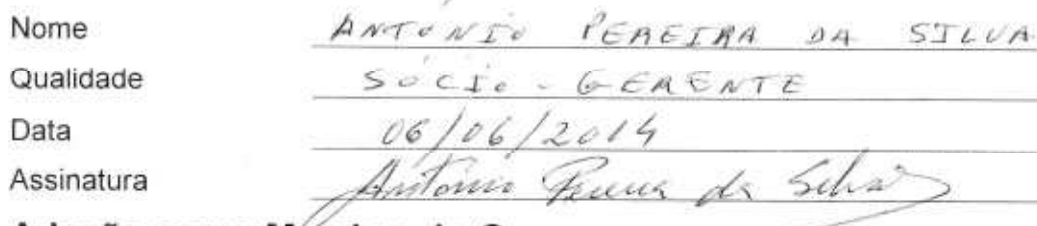 Nome ANTÓNIO PEREIRA DA SILVA
Qualidade SÓCIO-GERENTE
Data 06/06/2014
Assinatura António Pereira da Silva